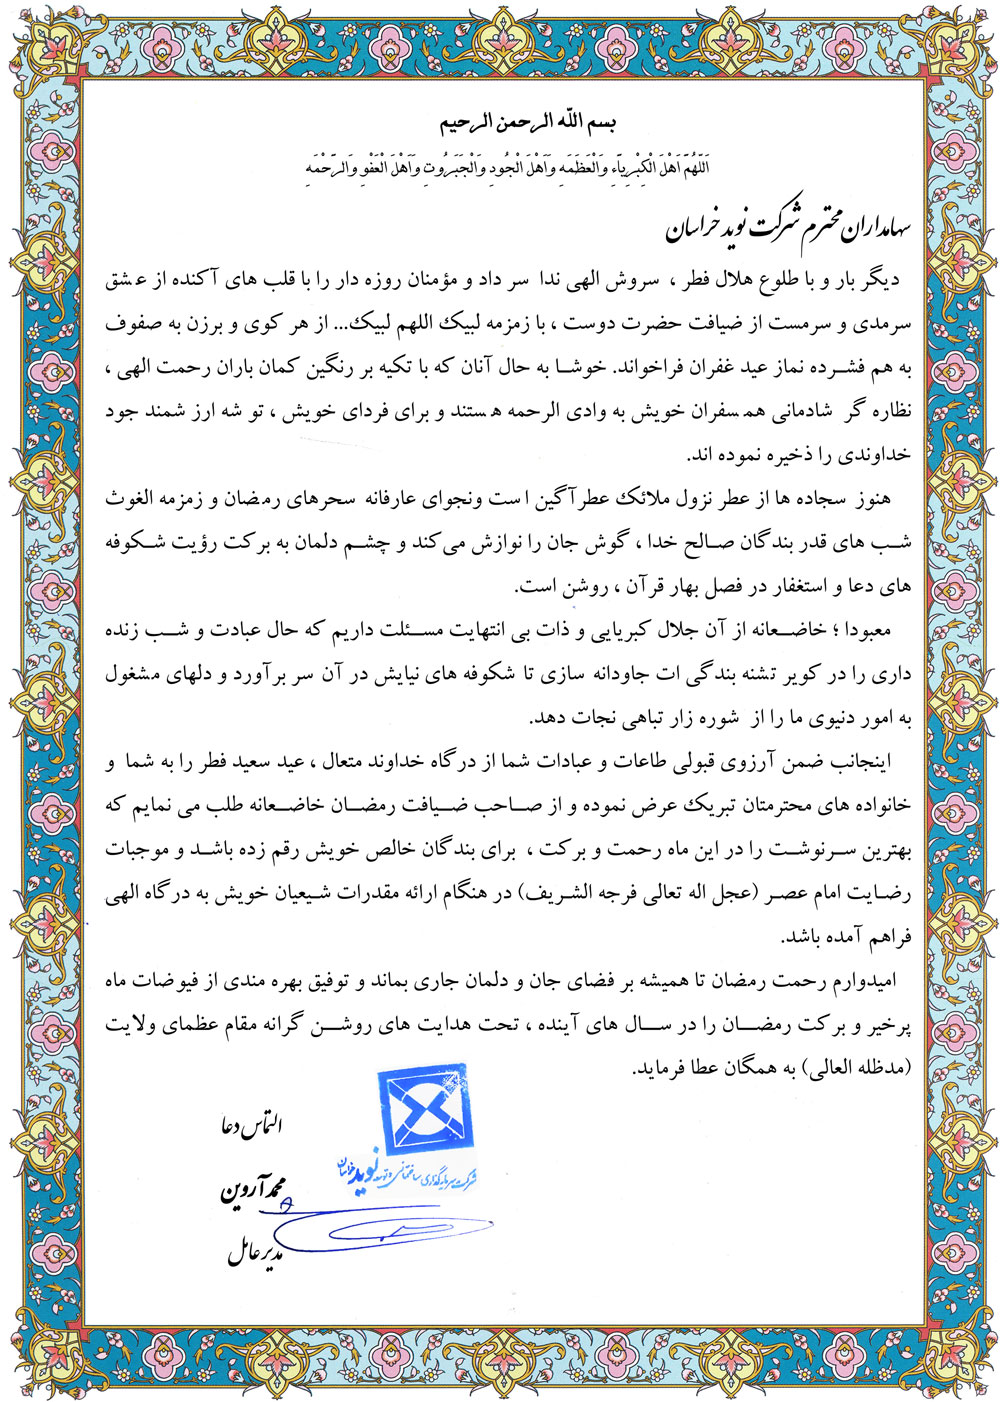 بسم الله الرحمن الرحیم
اَللّهُمَّ اَهْلَ الْکِبْرِیاَّءِ وَالْعَظَمَهِ وَاَهْلَ الْجُودِ وَالْجَبَرُوتِ وَاَهْلَ الْعَفْوِ وَالرَّحْمَهِ
سهامداران محترم شرکت نوید خراسان
دیگر بار و با طلوع هلال فطر ، سروش الهی ندا سر داد و مؤمنان روزه دار را با قلب های آکنده از عشق
سرمدی و سرمست از ضیافت حضرت دوست ، با زمزمه لبیک اللهم لبیک... از هر کوی و برزن به صفوف
به هم فشرده نماز عید غفران فراخواند. خوشا به حال آنان که با تکیه بر رنگین کمان باران رحمت الهی ،
نظاره گر شادمانی همسفران خویش به وادی الرحمه هستند و برای فردای خویش ، توشه ارزشمند جود
خداوندی را ذخیره نموده اند.
هنوز سجاده ها از عطر نزول ملائک عطرآگین است ونجوای عارفانه سحرهای رمضان و زمزمه الغوث
شب های قدر بندگان صالح خدا ، گوش جان را نوازش می‌کند و چشم دلمان به برکت رؤیت شکوفه
های دعا و استغفار در فصل بهار قرآن ، روشن است.
معبودا ؛ خاضعانه از آن جلال کبریایی و ذات بی انتهایت مسئلت داریم که حال عبادت و شب زنده
داری را در کویر تشنه بندگی ات جاودانه سازی تا شکوفه های نیایش در آن سر برآورد و دلهای مشغول
به امور دنیوی ما را از شوره زار تباهی نجات دهد.
اینجانب ضمن آرزوی قبولی طاعات و عبادات شما از درگاه خداوند متعال ، عید سعید فطر را به شما و
خانواده های محترمتان تبریک عرض نموده و از صاحب ضیافت رمضان خاضعانه طلب می نمایم که
بهترین سرنوشت را در این ماه رحمت و برکت ، برای بندگان خالص خویش رقم زده باشد و موجبات
رضایت امام عصر (عجل اله تعالی فرجه الشریف) در هنگام ارائه مقدرات شیعیان خویش به درگاه الهی
فراهم آمده باشد.
امیدوارم رحمت رمضان تا همیشه بر فضای جان و دلمان جاری بماند و توفیق بهره مندی از فیوضات ماه
پرخیر و برکت رمضان را در سال های آینده ، تحت هدایت های روشن گرانه مقام عظمای ولایت
(مدظله العالی) به همگان عطا فرماید.
التماس دعا
شرکت سرمایه گذاری ساختمانی و توسعه نوید خراسان
محمد آروین
مدیرعامل